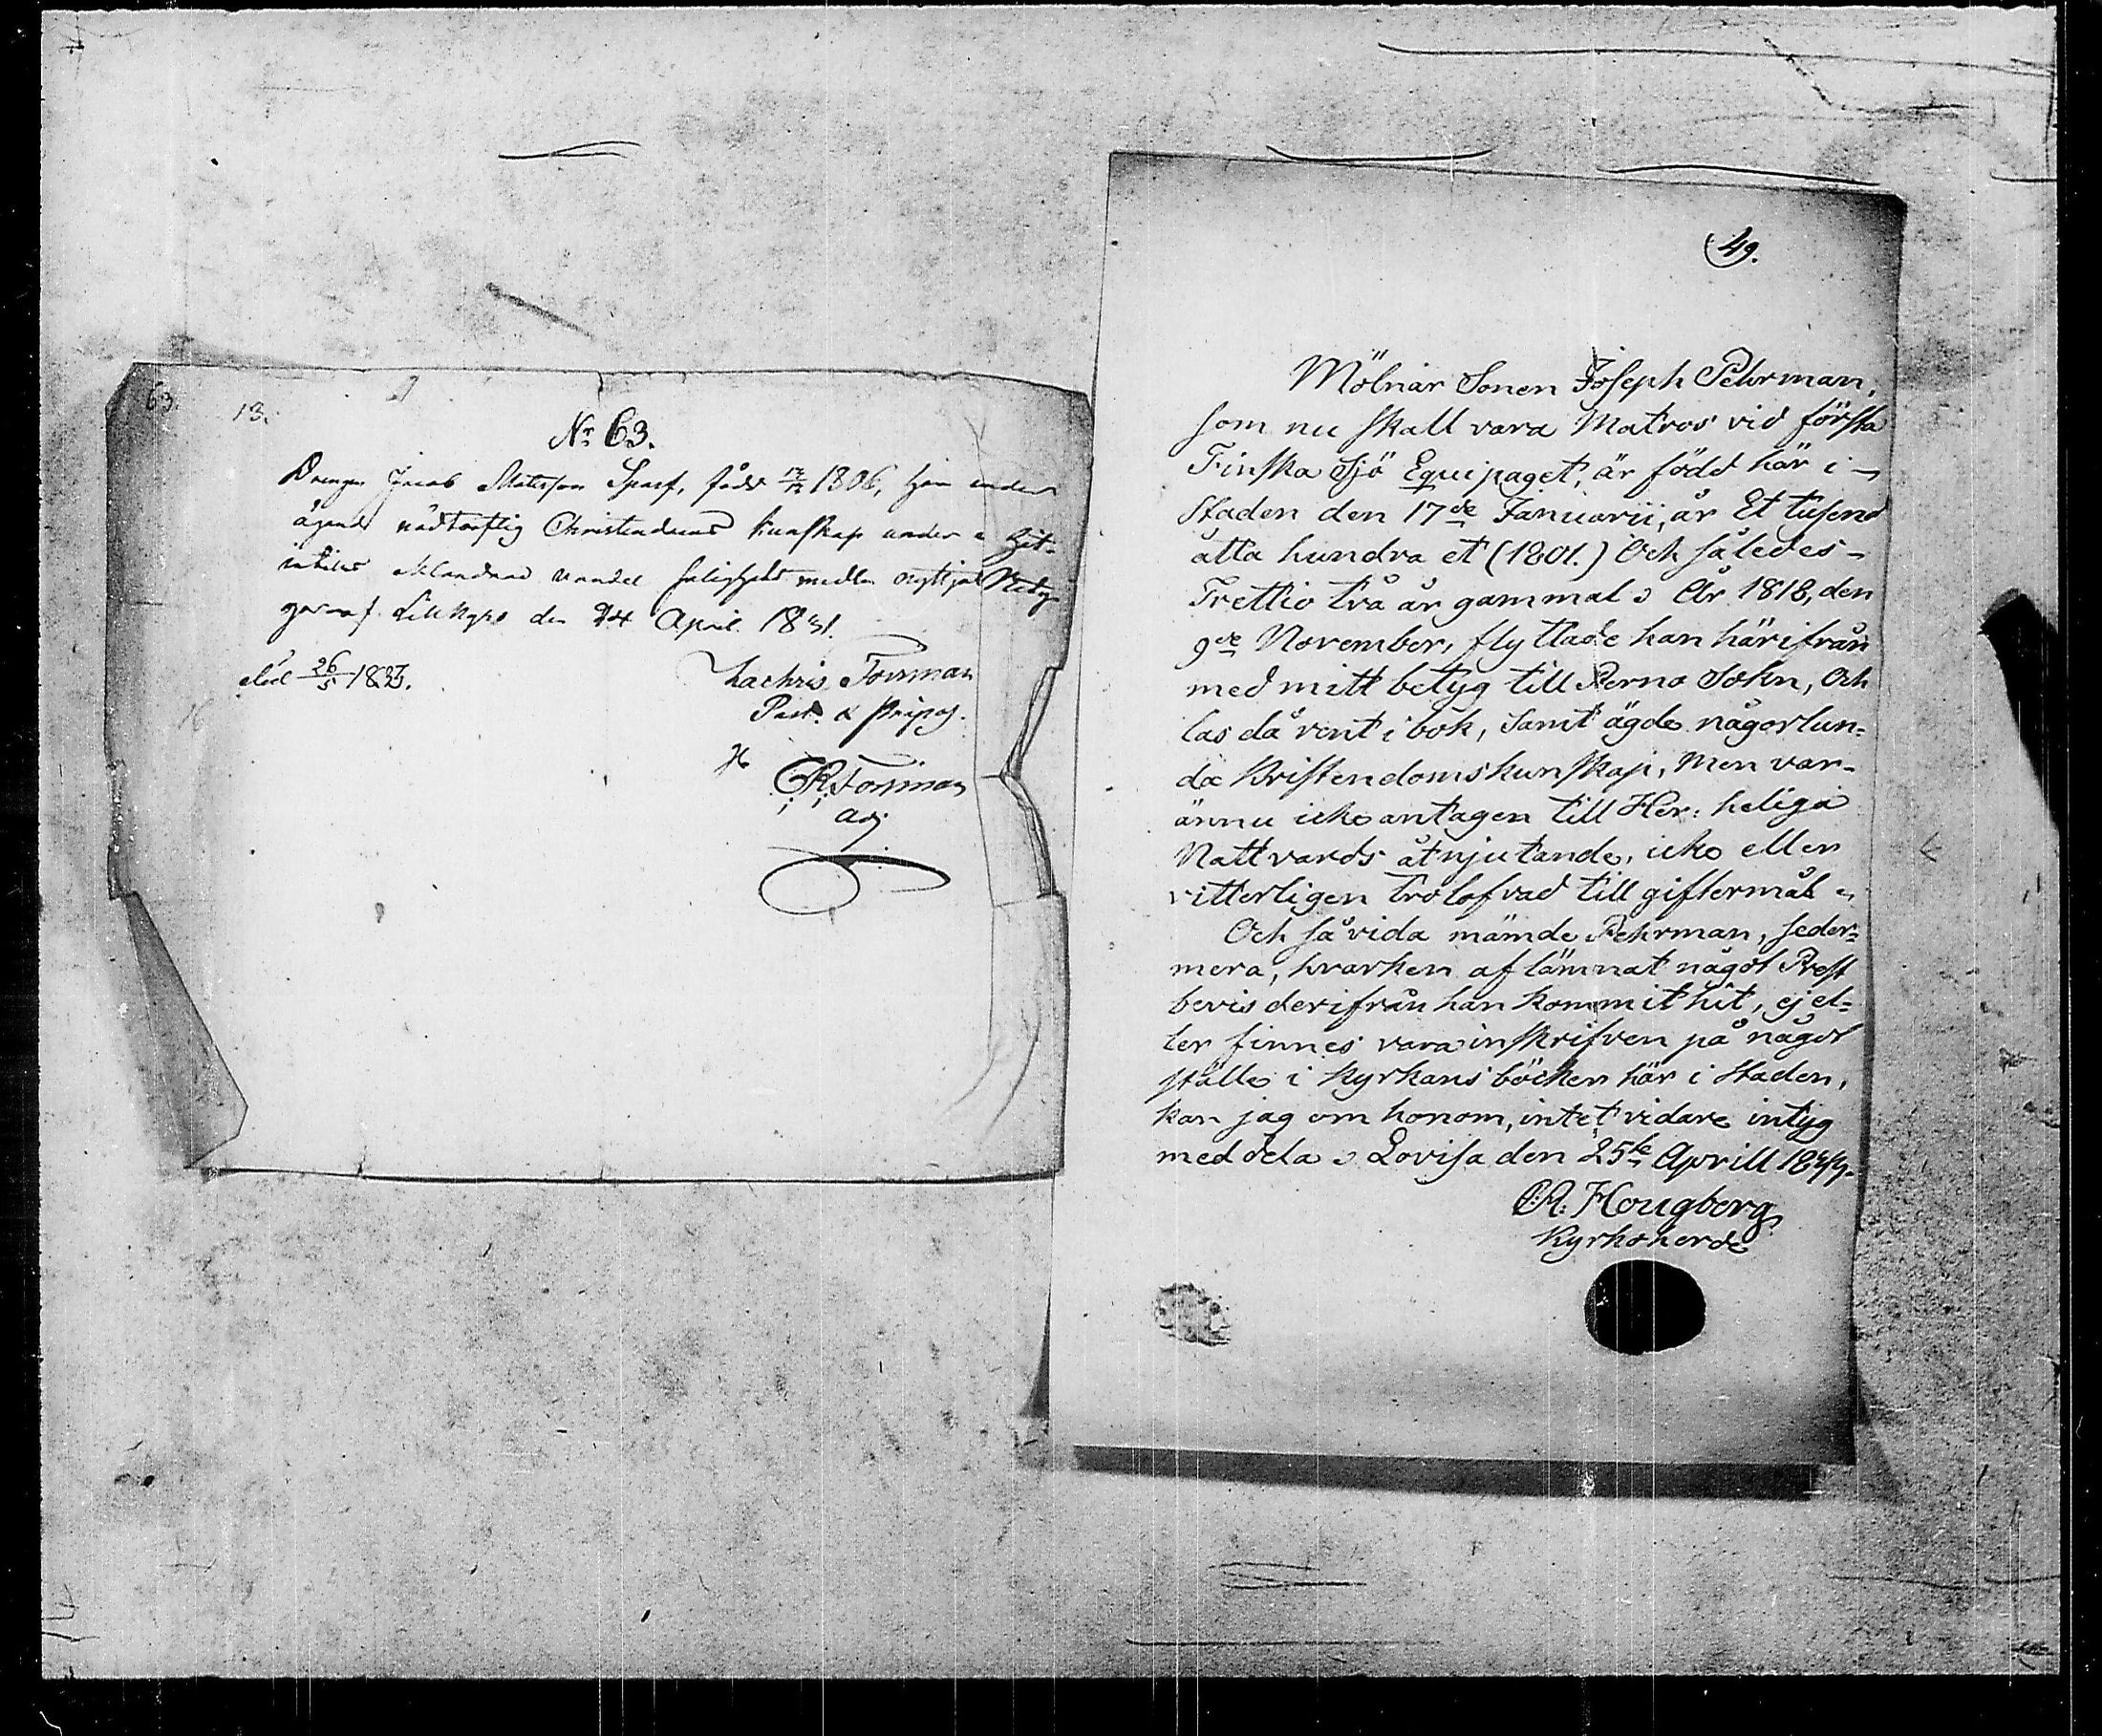 63.
13.
Nr 63.
Drengen Jacob Matsson Sparf, född 1806,
ägande nödtorftig Christendoms kunskap under
vandel salighets medlen
den 24 April 1831.
död 26/5 1833.
Zachris Forsman
Past. & Præpos.
Forsman
Adj.
49.
Mölnar Sonen Joseph Pehrman,
som nu skall vara Matros vid första
Finska Sjö Equipaget, är född här i
Staden den 17de Januarii, år Et tusend
åtta hundra et (1801.) Och således
Trettio två år gammal. År 1818, den
9de November, flyttade han härifrån
med mitt betyg till Perno Sokn, Och
las då rent i bok, samt ägde någorlun=
da Kristendomskunskap, Men var
ännu icke antagen till Her: heliga
Nattvards åtnjutande, icke eller
vitterligen trolofvad till giftermål
Och såvida nämde Pehrman, seder=
mera, hvarken aflämnat något Prest
bevis derifrån han kommit hit, ej el=
ler finnes vara inskrifven på något
ställe i Kyrkans böcker här i staden,
kan jag om honom, intet vidare intyg
meddela. Lovisa den 25te Aprill
Hougberg
Kyrkoherde